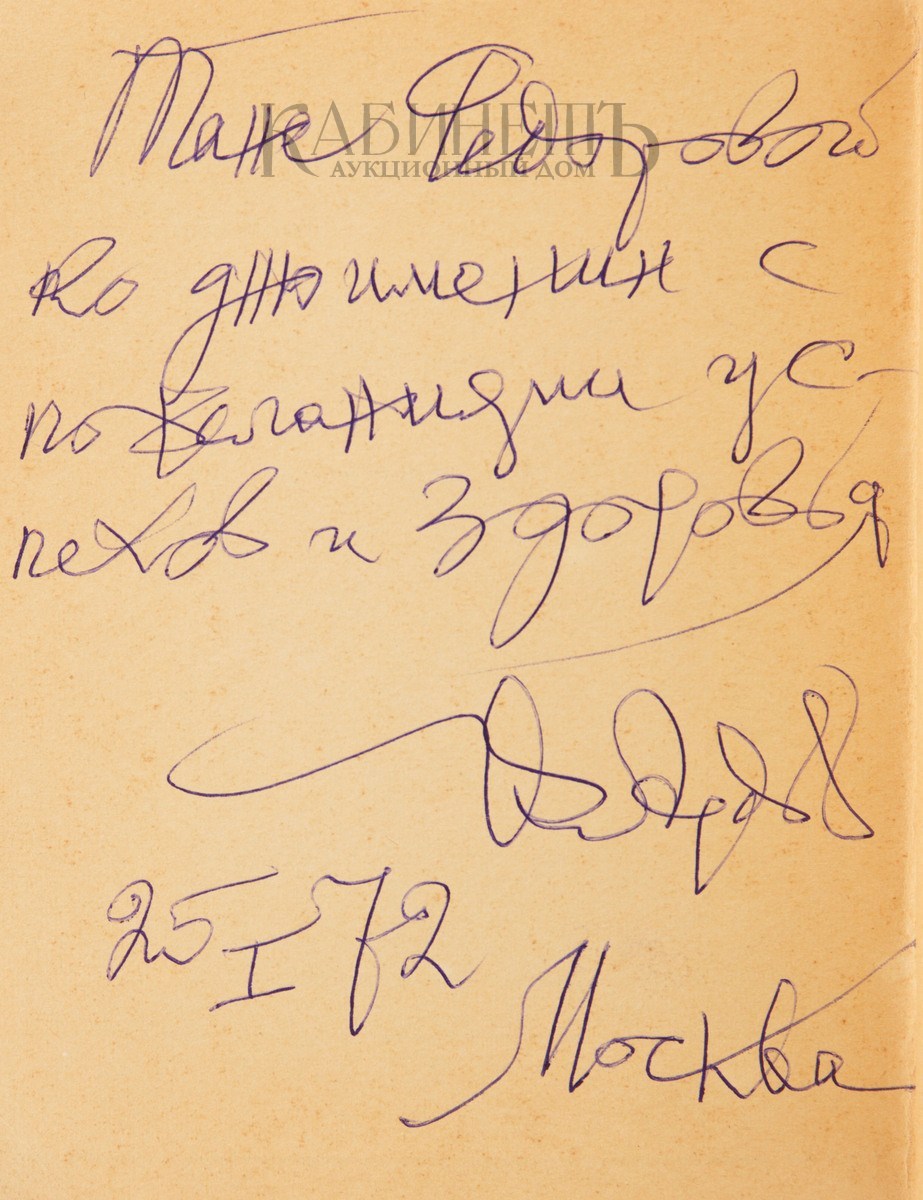 Тане Федоровой
КАБИНЕТЪ
АУКЦИОННЫЙ ДОМ
Ко дню именин с
пожеланиями ус-
пехов и здоровья
25 I 72
Москва